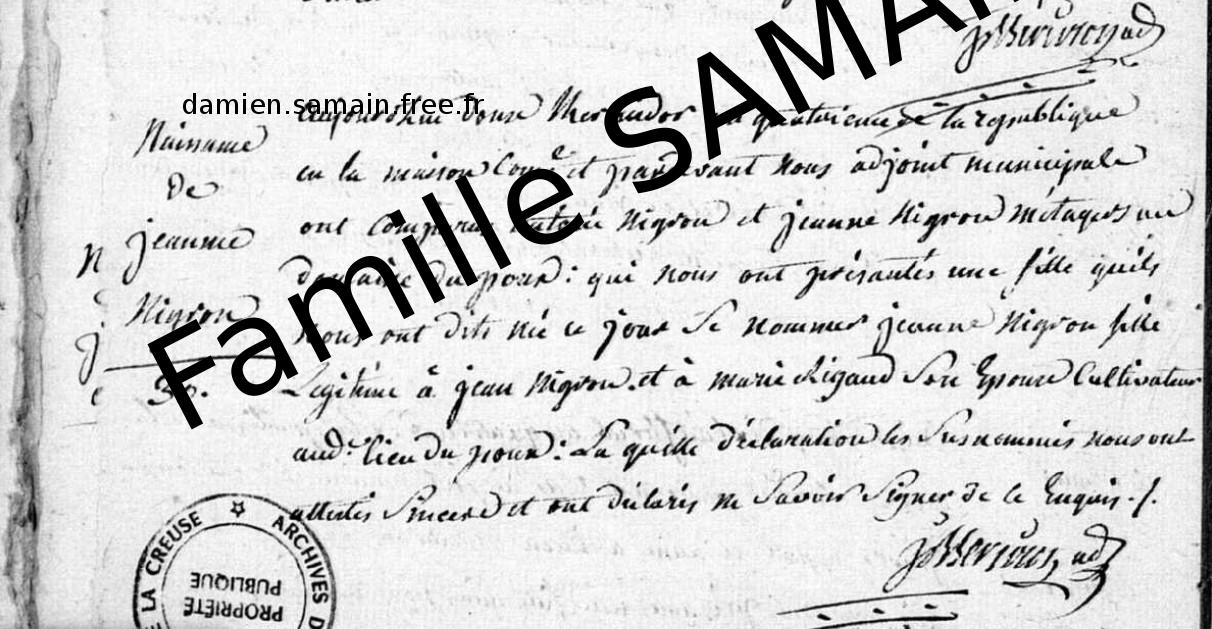 damien.samain.free.fr
Famille SAMAI
Naissance
De
jeanne
Nigron
30.
N
j
e
aujourd'hui douze Messidor quatrieme de la republique
en la maison Come et pardevant Nous adjoint municipale
ont Comparus Nigron et jeanne Nigron métayers au
domaine du poux : qui nous ont présantés une fille quils
Nous ont dits née ce jour Se nommer jeanne Nigron fille
Légitime à jean Nigron et à marie Rigaud Son Epouse Cultivateur
aud. lieu du poux : La quelle déclaration les Susnommés nous ont
attestés Sincere et ont déclarés ne Savoir Signer de ce Enquis ./.
ARCHIVES D
E LA CREUSE
PROPRIÉTÉ
PUBLIQUE